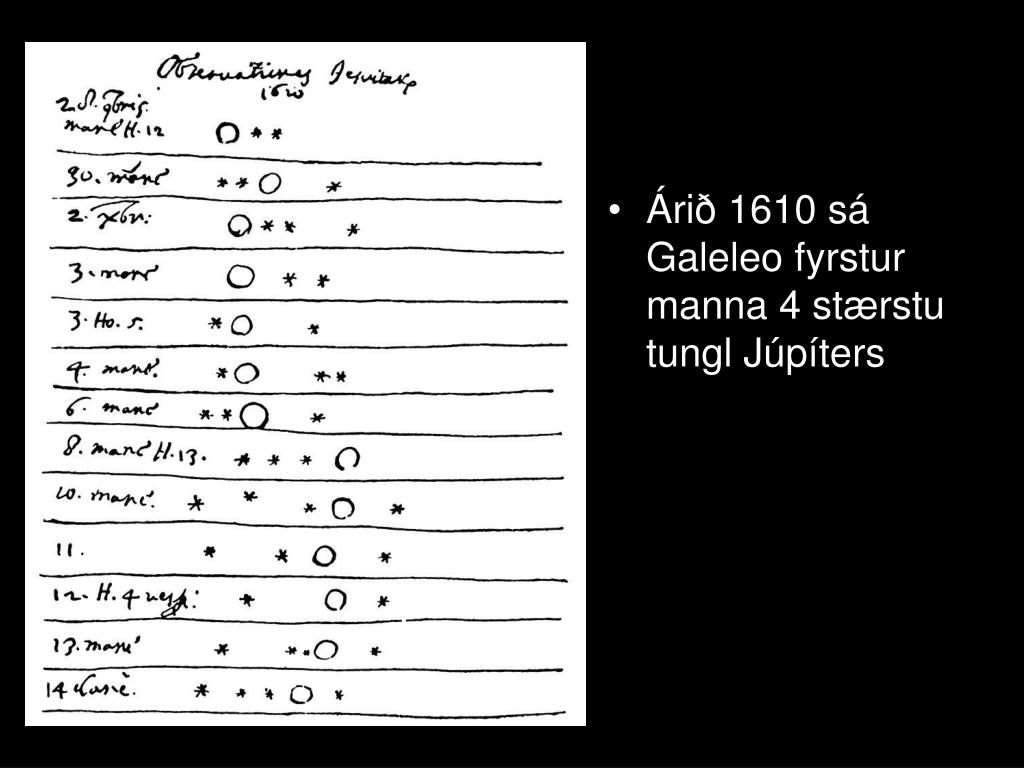 Observationes Jesuitarum
1610
2. S. 9bris.
mane H. 12
30. mane
2. Xbr:
3. mane
3. Ho. 5.
4. mane.
6. mane
8. mane H. 13.
10. mane.
11.
12. H. 4 vesp:
13. mane
14
• Árið 1610 sá
Galeleo fyrstur
manna 4 stærstu
tungl Júpíters